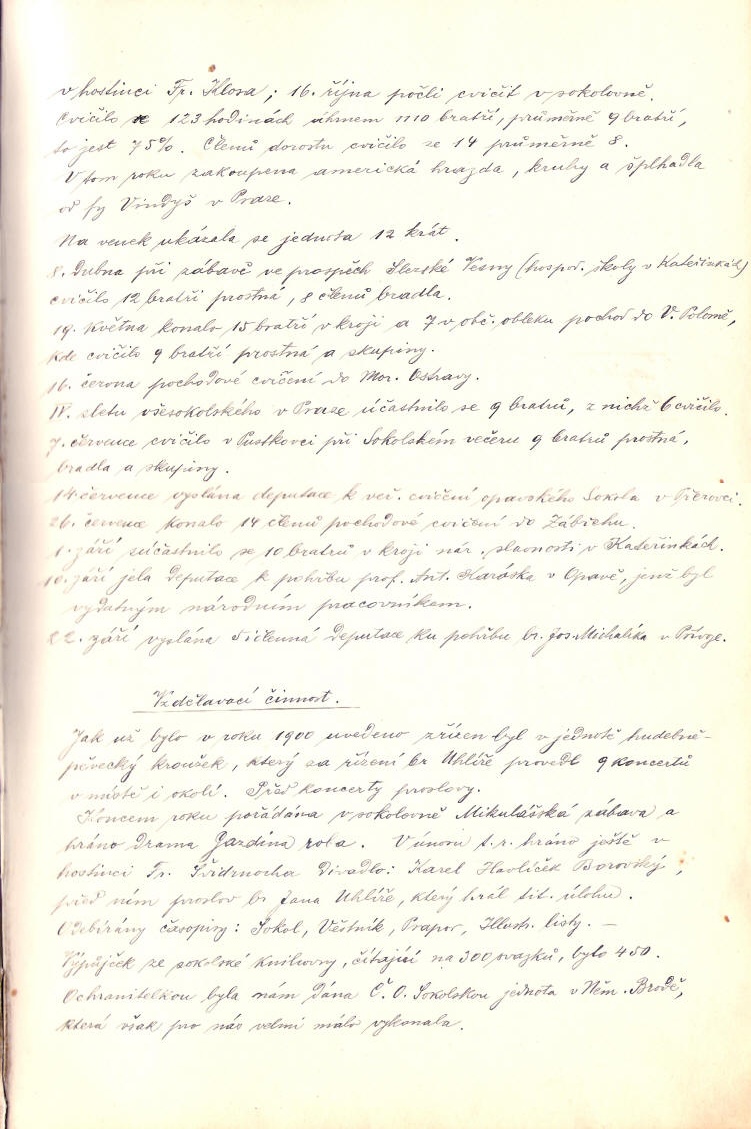 v hostinci Fr. Klosa; 16. října počli cvičit v sokolovně.
Cvičilo v 123 hodinách úhrnem 1110 bratří, průměrně 9 bratří,
to jest 75%. Členů dorostu cvičilo ze 14 průměrně 8.
V tom roku zakoupena americká hrazda, kruhy a šplhadla
od fy Vindyš v Praze.
Na venek ukázala se jednota 12 krát.
8. Dubna při zábavě ve prospěch Slezské Vesny (hospod. školy v Kateřinkách)
cvičilo 12 bratří prostná, 8 členů bradla.
19. Května konalo 15 bratří v kroji a 7 v obč. obleku pochod do V. Polomě,
kde cvičilo 9 bratří prostná a skupiny.
16. června pochodové cvičení do Mor. Ostravy.
IV. sletu všesokolského v Praze účastnilo se 9 bratrů, z nichž 6 cvičilo.
7. července cvičilo v Pustkovci při Sokolském večeru 9 bratrů prostná,
bradla a skupiny.
14. července vyslána deputace k veř. cvičení opavského Sokola v
26. července konalo 14 členů pochodové cvičení do Zábřehu.
1. září súčastnilo se 10 bratrů v kroji nár. slavnosti v Kateřinkách.
10. září jela deputace k pohřbu prof. Ant. Karáska v Opavě, jenž byl
vydatným národním pracovníkem.
22. září vyslána 5ičlenná deputace ku pohřbu br. Jos. Michalíka v Přívoze.
Vzdělavací činnost.
Jak už bylo v roku 1900 uvedeno zřízen byl v jednotě hudebně-
pěvecký kroužek, který za řízení br Uhlíře provedl 9 koncertů
v místě i okolí. Před koncerty proslovy.
Koncem roku pořádána v sokolovně Mikulášská zábava a
hráno drama Gazdina roba. V únoru t.r. hráno ještě v
hostinci Fr. Divadlo: Karel Havlíček Borovský,
před ním proslov br Jana Uhlíře, který hrál tit. úlohu.
Odbírány časopisy: Sokol, Věstník, Prapor, Illustr. listy. —
Výpůjček ze sokolské knihovny, čítající na 300 svazků, bylo 450.
Ochranitelkou byla nám dána Č. O. Sokolskou jednota v Něm. Brodě,
která však pro nás velmi málo vykonala.